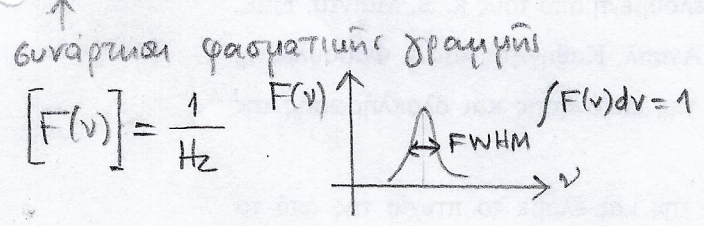 συνάρτηση φασματικής γραμμής
[F(ν)] = 1/Hz
F(ν)
∫F(ν)dν = 1
FWHM
ν